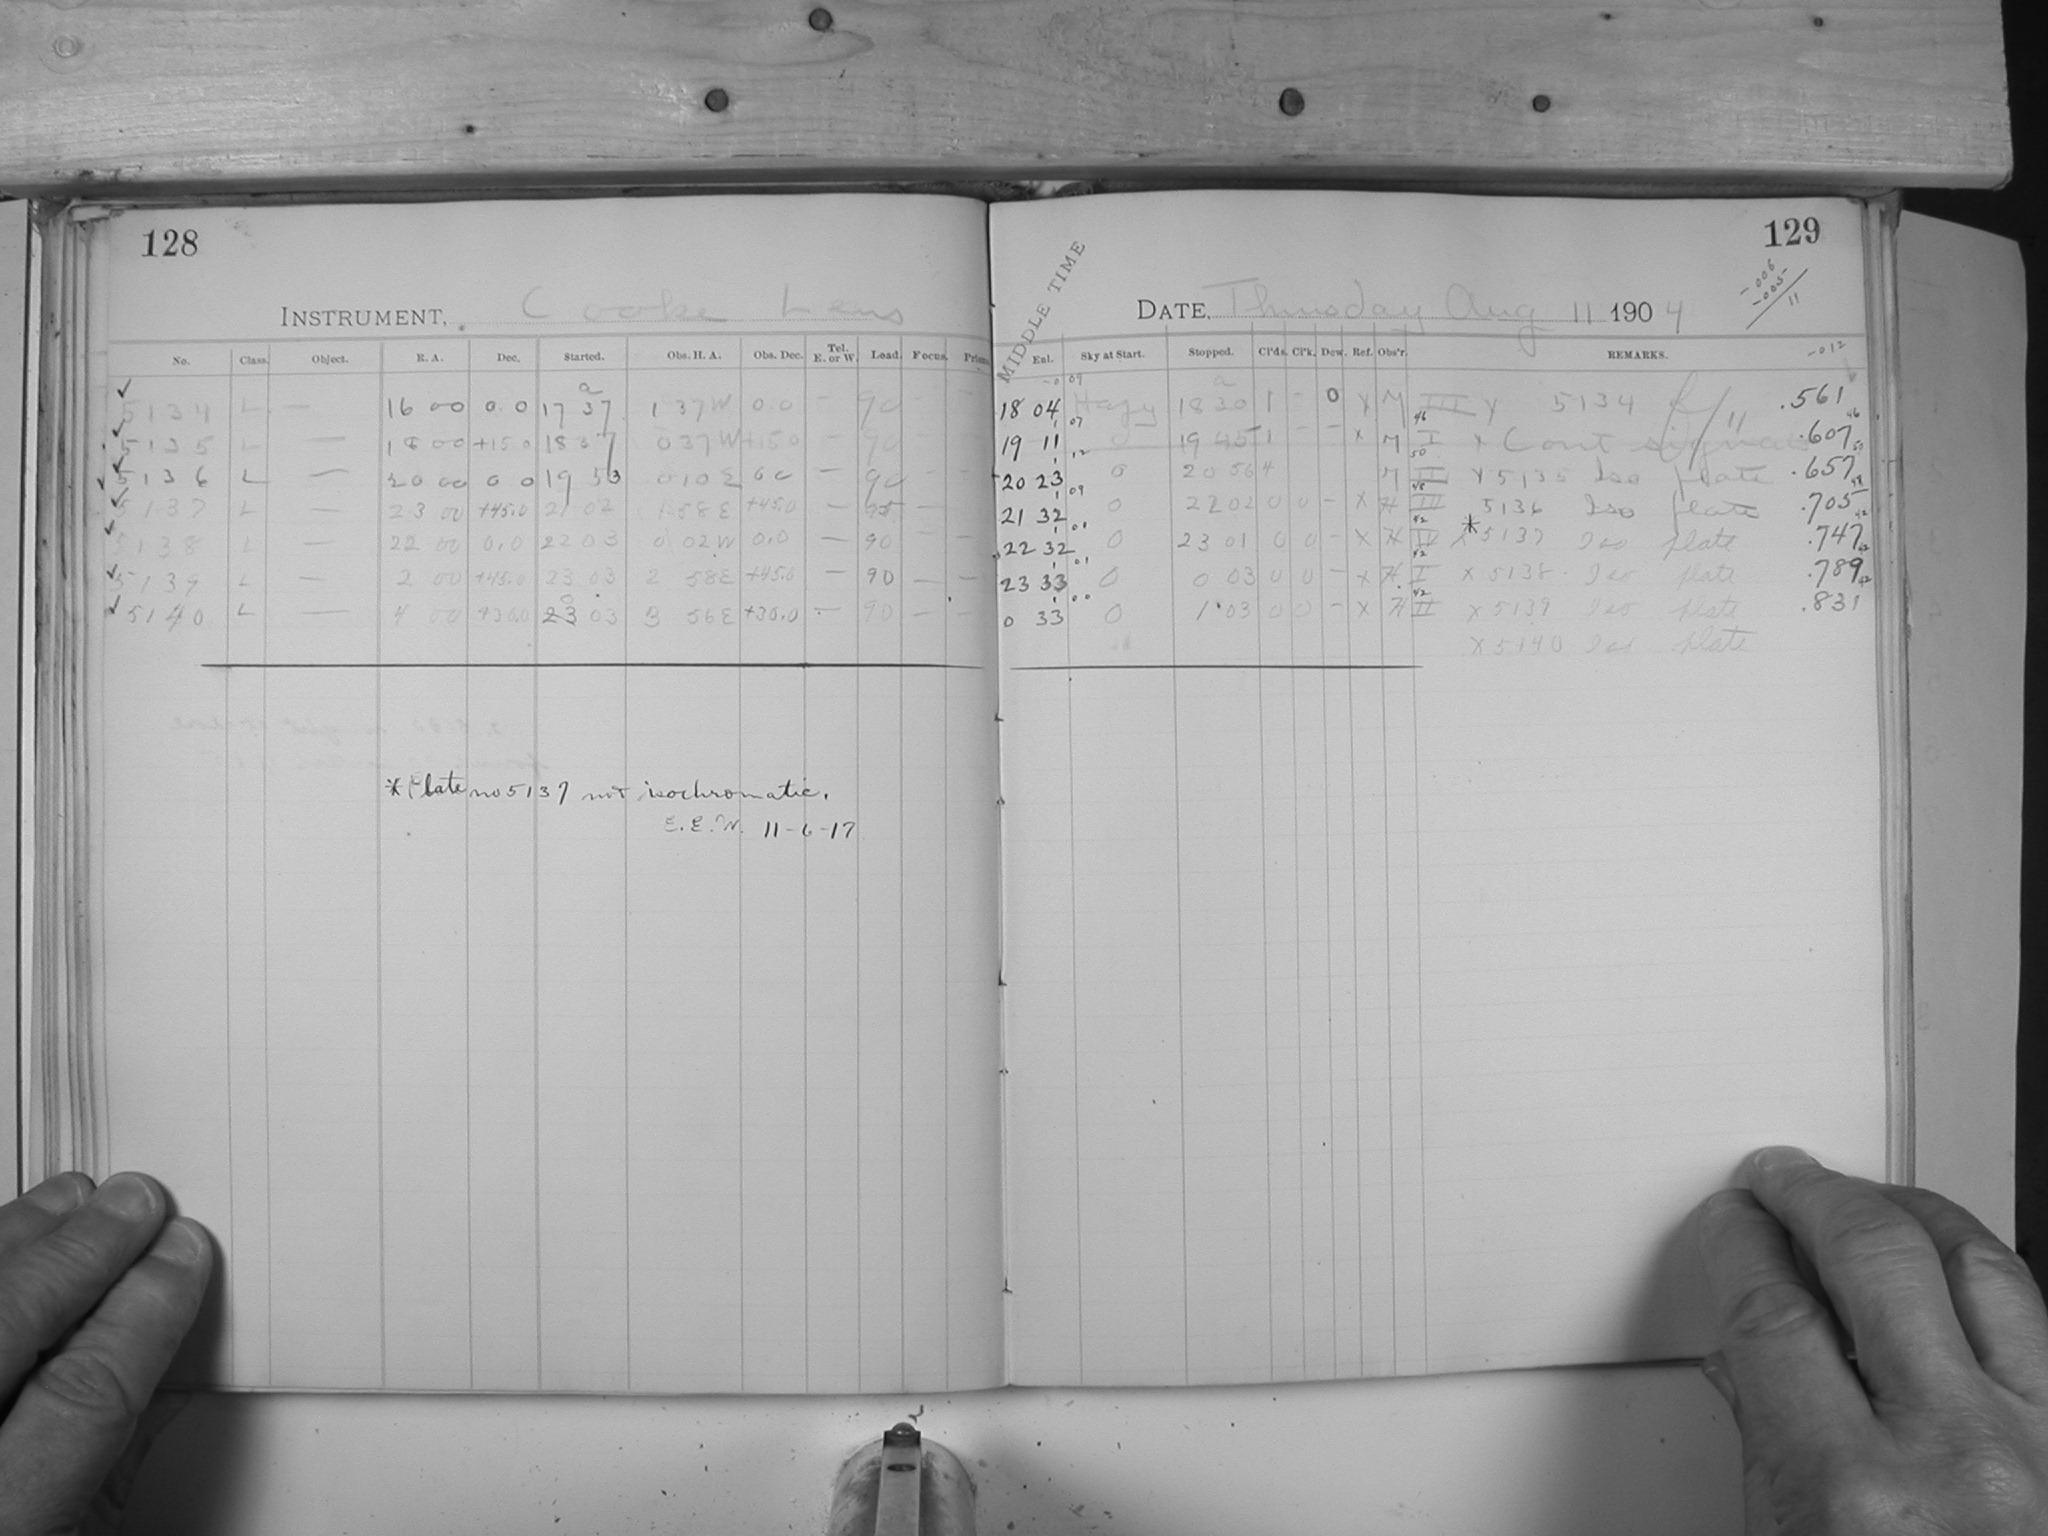 128
INSTRUMENT, Cooke Lens
No. Class. Object. R. A. Dec. Started. Obs. H. A. Obs. Dec. Tel. E. or W. Load. Focus. Prism.
a
5134 L — 16 00 0.0 17 37 1 37W 0.0 — 90 — —
5135 L — 18 00 +15.0 18 37 0 37W +15.0 — 90 — —
5136 L — 20 00 0 0 19 53 0 10E 00 — 90 — —
5137 L — 23 00 +45.0 21 02 1 58E +45.0 — 95 — —
5138 L — 22 00 0.0 22 03 0 02W 0.0 — 90 — —
5139 L — 2 00 +45.0 23 03 2 58E +45.0 — 90 — —
5140 L — 4 00 +30.0 23 03 3 56E +30.0 — 90 — —
* Plate no 5137 not isochromatic.
E.E.W. 11-6-17
129
-006
-005
11
MIDDLE TIME
DATE, Thursday Aug 11 1904
Exl. Sky at Start. Stopped. Cl'ds. Cl'k. Dew. Ref. Obs'r. REMARKS. -012
18 04 Hazy 18 30 1 – 0 x M III x 5134 .561
19 11 0 19 45 1 – – x M I x Cont signals .607
20 23 0 20 56 4 M II x 5135 Iso plate .657
21 32 0 22 02 0 0 – x H III 5136 Iso plate .705
22 32 0 23 01 0 0 – x H IV x *5137 Iso plate .747
23 33 0 0 03 0 0 – x H I x 5138 Iso plate .789
0 33 0 1 03 0 0 – x H II x 5139 Iso plate .831
x 5140 Iso plate